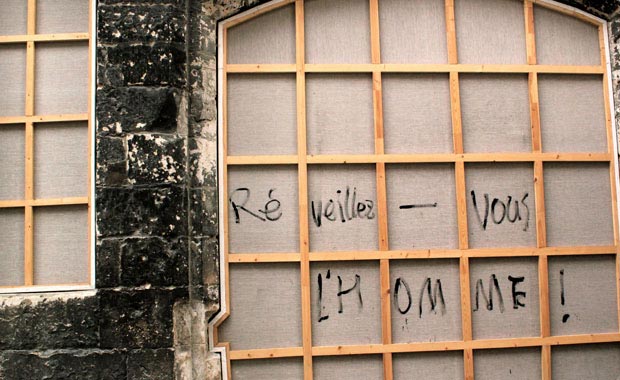 Réveillez - vous
L'HOMME !